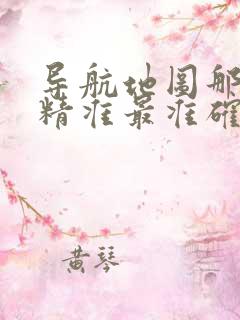 导航地图那
精准最准确
黄琴